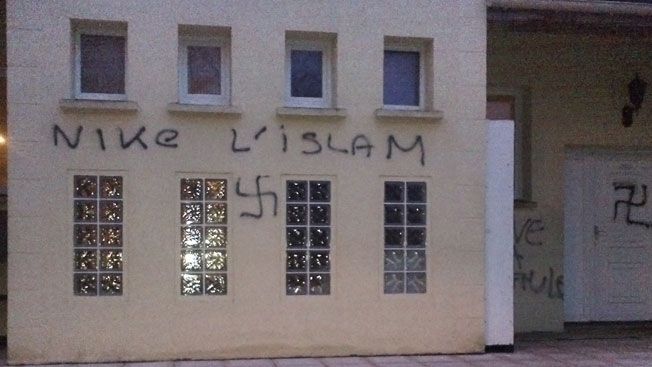 NIKe L'iSLAM
VE
AULE